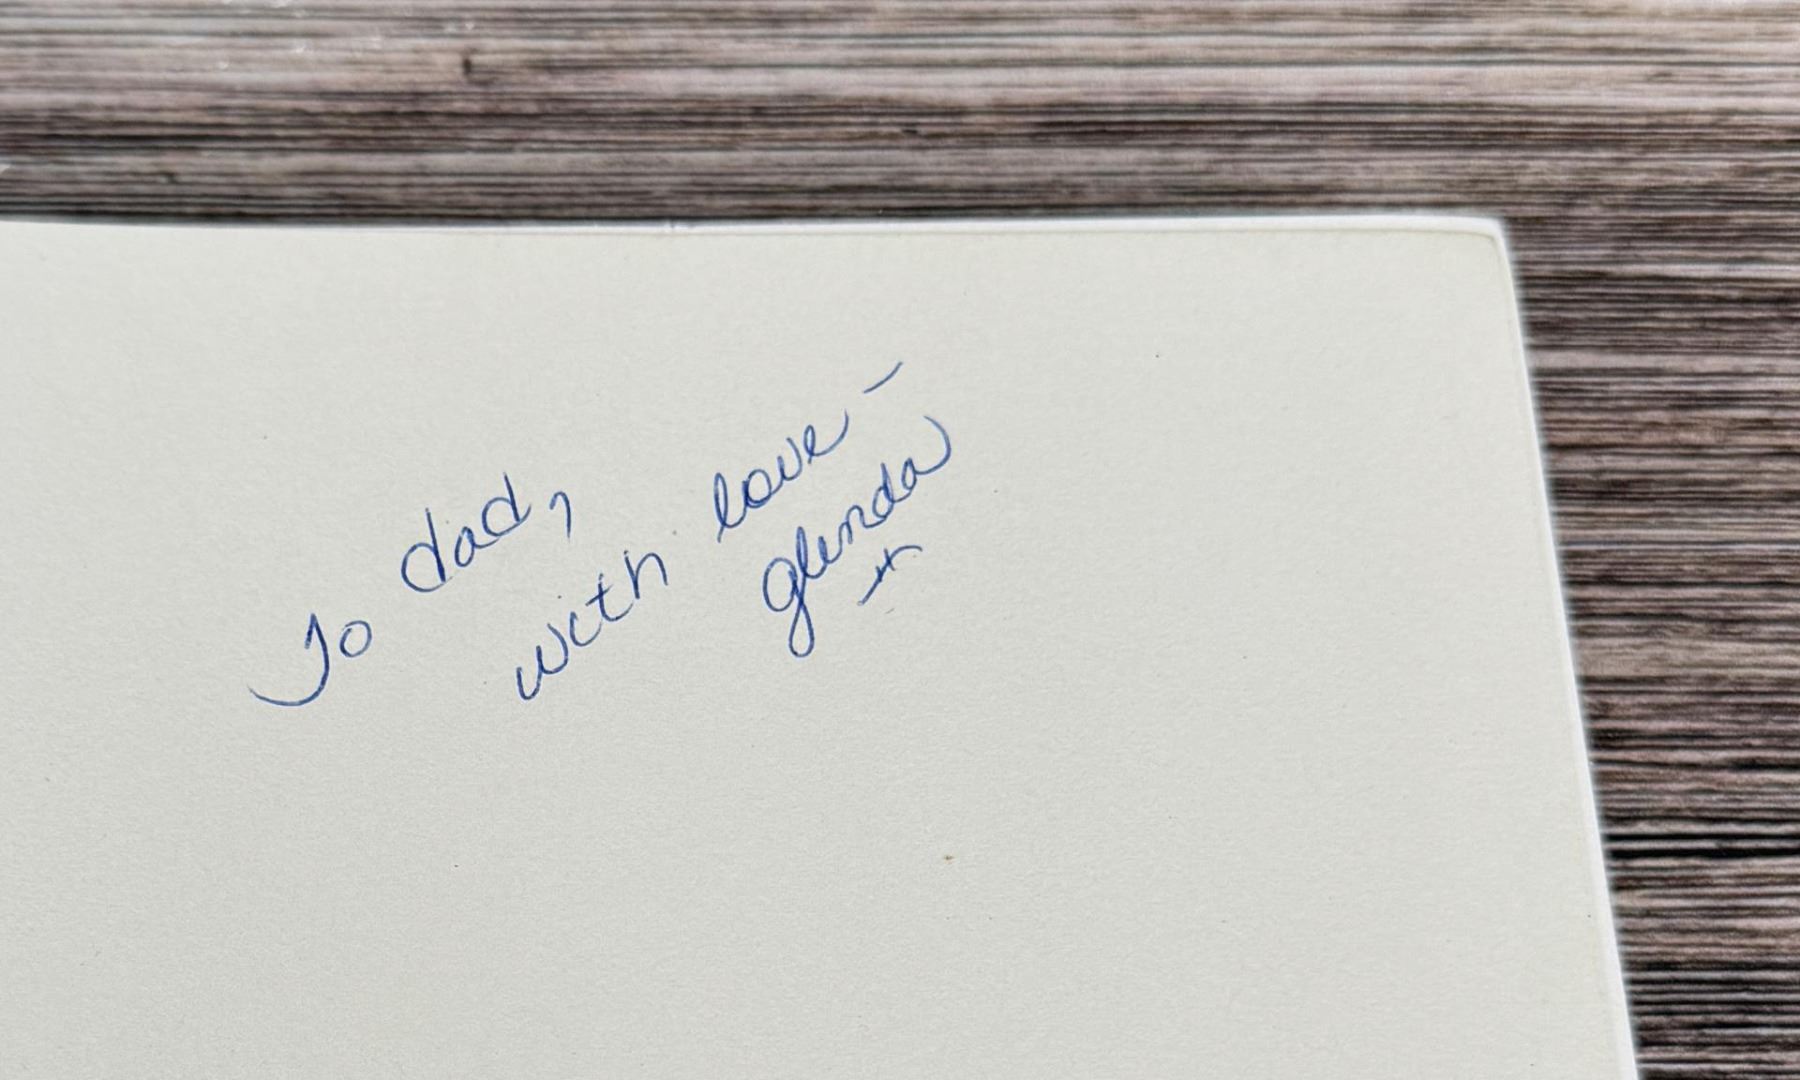 To dad,
with love -
glenda
x